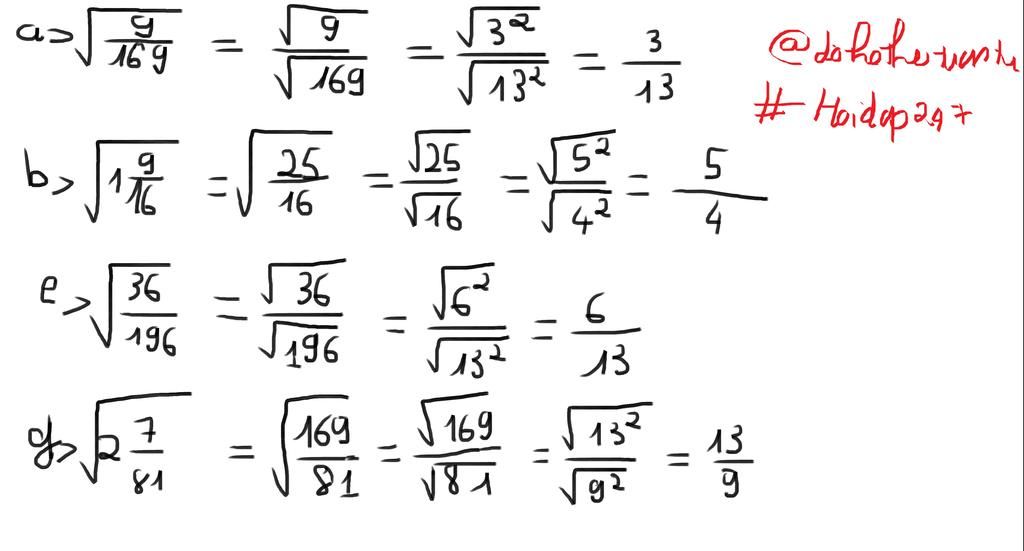 a> √(9/169) = √9/√169 = √3²/√13² = 3/13
# Hoidap247
b> √(1 9/16) = √(25/16) = √25/√16 = √5²/√4² = 5/4
e> √(36/196) = √36/√196 = √6²/√13² = 6/13
g> √(2 7/81) = √(169/81) = √169/√81 = √13²/√9² = 13/9